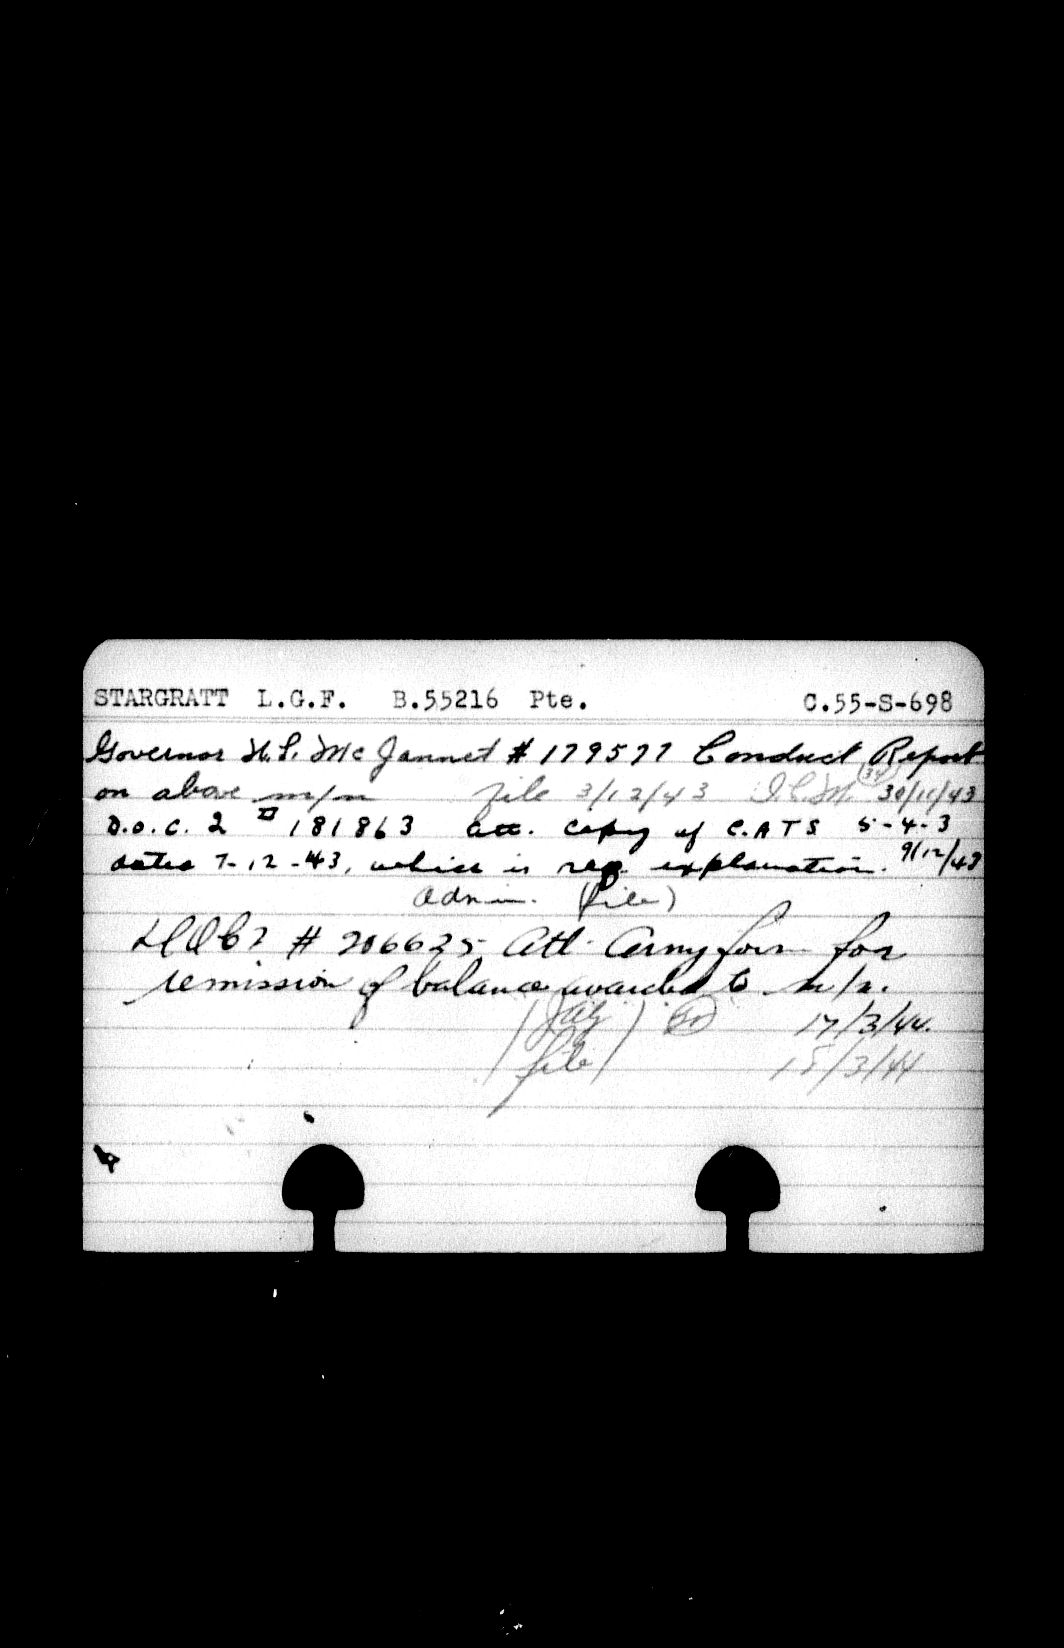 STARGRATT L.G.F. B.55216 Pte. C.55-S-698
Governor Mc Jannet # 179577 Conduct Report
on above m/n file 3/12/43 30/11/43
D.O.C. 2 # 181863 att. copy of C.A T S 5-4-3
dated 7-12-43, which is req. explanation. 9/12/43
Admin. (file)
# 206625 Att. Army form for
remission of balance awarded to m/n.
17/3/44.
file 18/3/44